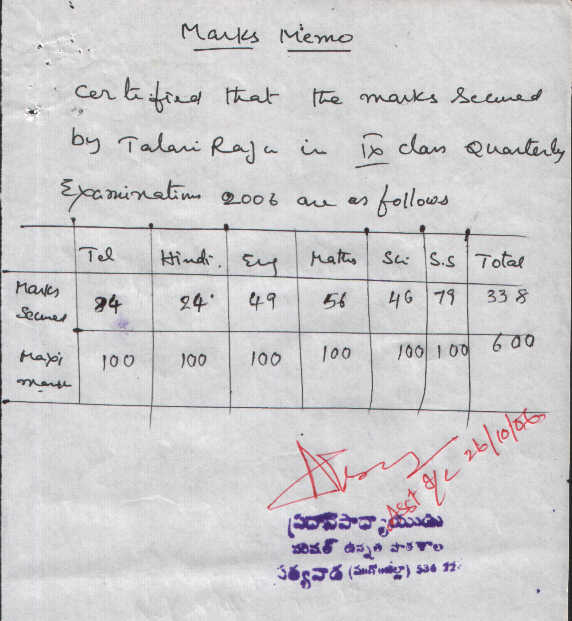 Marks Memo
Certified that the marks Secured
by Talari Raju in IX class Quarterly
Examinations 2006 are as follows
Tel Hindi. Eng Maths Sci S.S Total
Marks Secured 84 24 49 56 46 79 338
Maxi marks 100 100 100 100 100 100 600
Asst I/c 26/10/06
ప్రధానోపాధ్యాయుడు
పరిషత్ ఉన్నత పాఠశాల